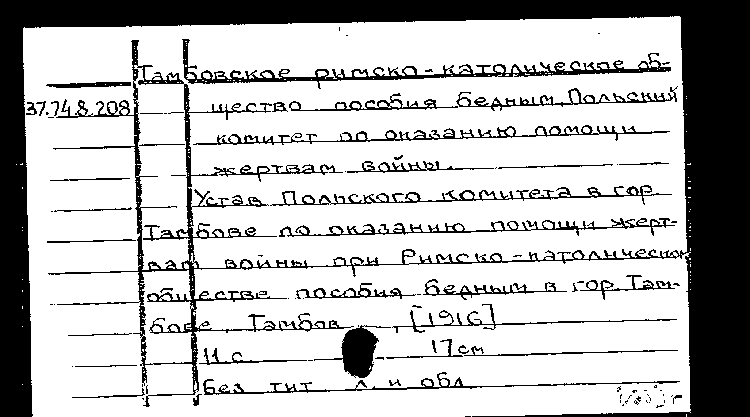 Тамбовское римско-католическое об-
37.74.8.208 щество пособия бедным. Польский
комитет по оказанию помощи
жертвам войны.
Устав Польского комитета в гор.
Тамбове по оказанию помощи жерт-
вам войны при Римско-католическом
обществе пособия бедным в гор. Там-
бове. Тамбов, [1916]
11 с. 17 см
Без тит. л. и обл.